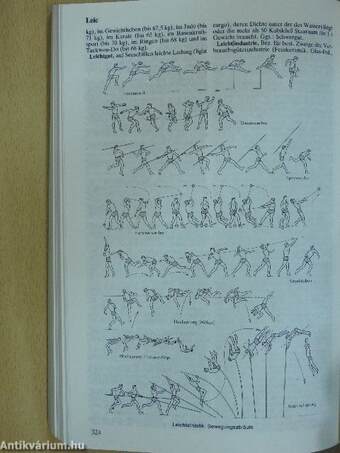 Leic
kg), im Gewichtheben (bis 67,5 kg), im Judo (bis
71 kg), im Karate (bis 65 kg), im Rasenkraft-
sport (bis 70 kg), im Ringen (bis 68 kg) und im
Taekwon-Do (bis 68 kg).
Leichtgut, auf Seeschiffen leichte Ladung (light
cargo), deren Dichte unter der des Wassers liegt
oder die mehr als 50 Kubikfuß Stauraum für 1 t
Gewicht braucht. Ggs.: Schwergut.
Leichtindustrie, Bez. für best. Zweige der Ver-
brauchsgüterindustrie
Diskuswerfen
Speerwerfen
Hammerwerfen
Kugelstoßen
Stabhochsprung
324
Leichtathletik. Bewegungsabläufe
Antikvárium.hu